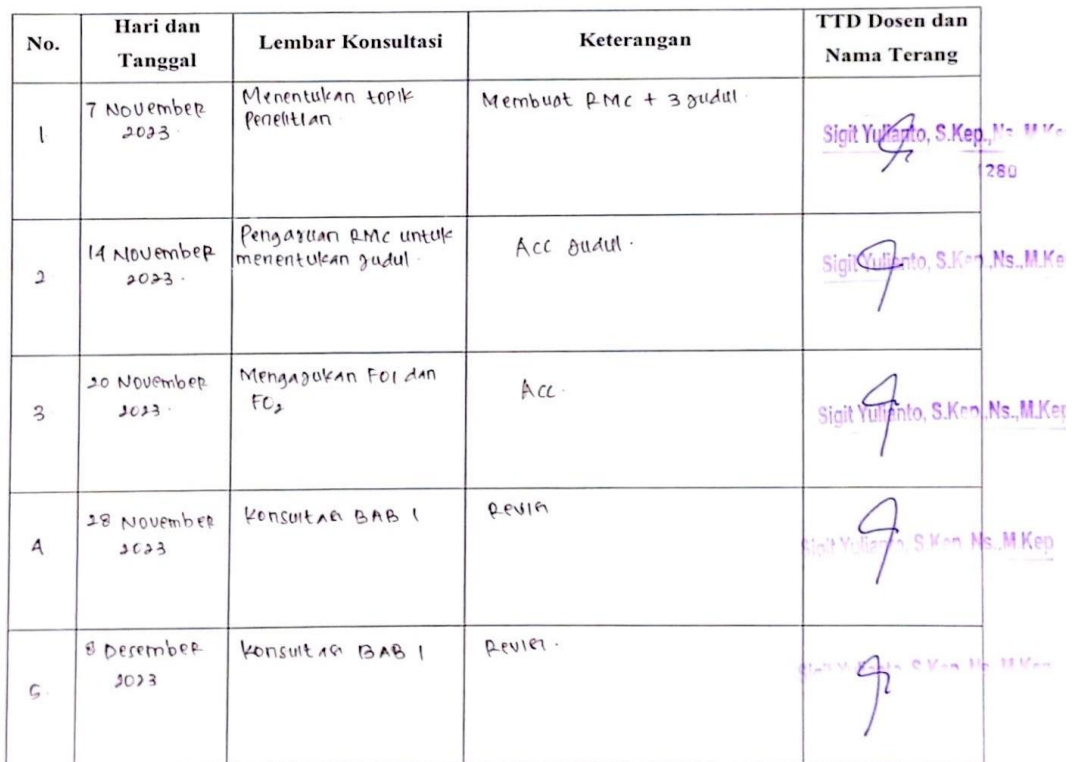 No.
Hari dan
Tanggal
Lembar Konsultasi
Keterangan
TTD Dosen dan
Nama Terang
1.
7 November
2023.
Menentukan topik
Penelitian
Membuat RMC + 3 judul.
Sigit Yulianto, S.Kep.,Ns. M.Ke
1280
2
14 November
2023.
Pengajuan RMC untuk
menentukan judul.
Acc judul.
Sigit Yulianto, S.Kep.,Ns.,M.Ke
3
20 November
2023.
Mengajukan FO1 dan
FO2
Acc.
Sigit Yulianto, S.Kep.,Ns.,M.Kep
4
28 November
2023
Konsultasi BAB 1
Revisi
Sigit Yulianto, S.Kep.Ns.,M.Kep
5.
8 Desember
2023
Konsultasi BAB 1
Revisi.